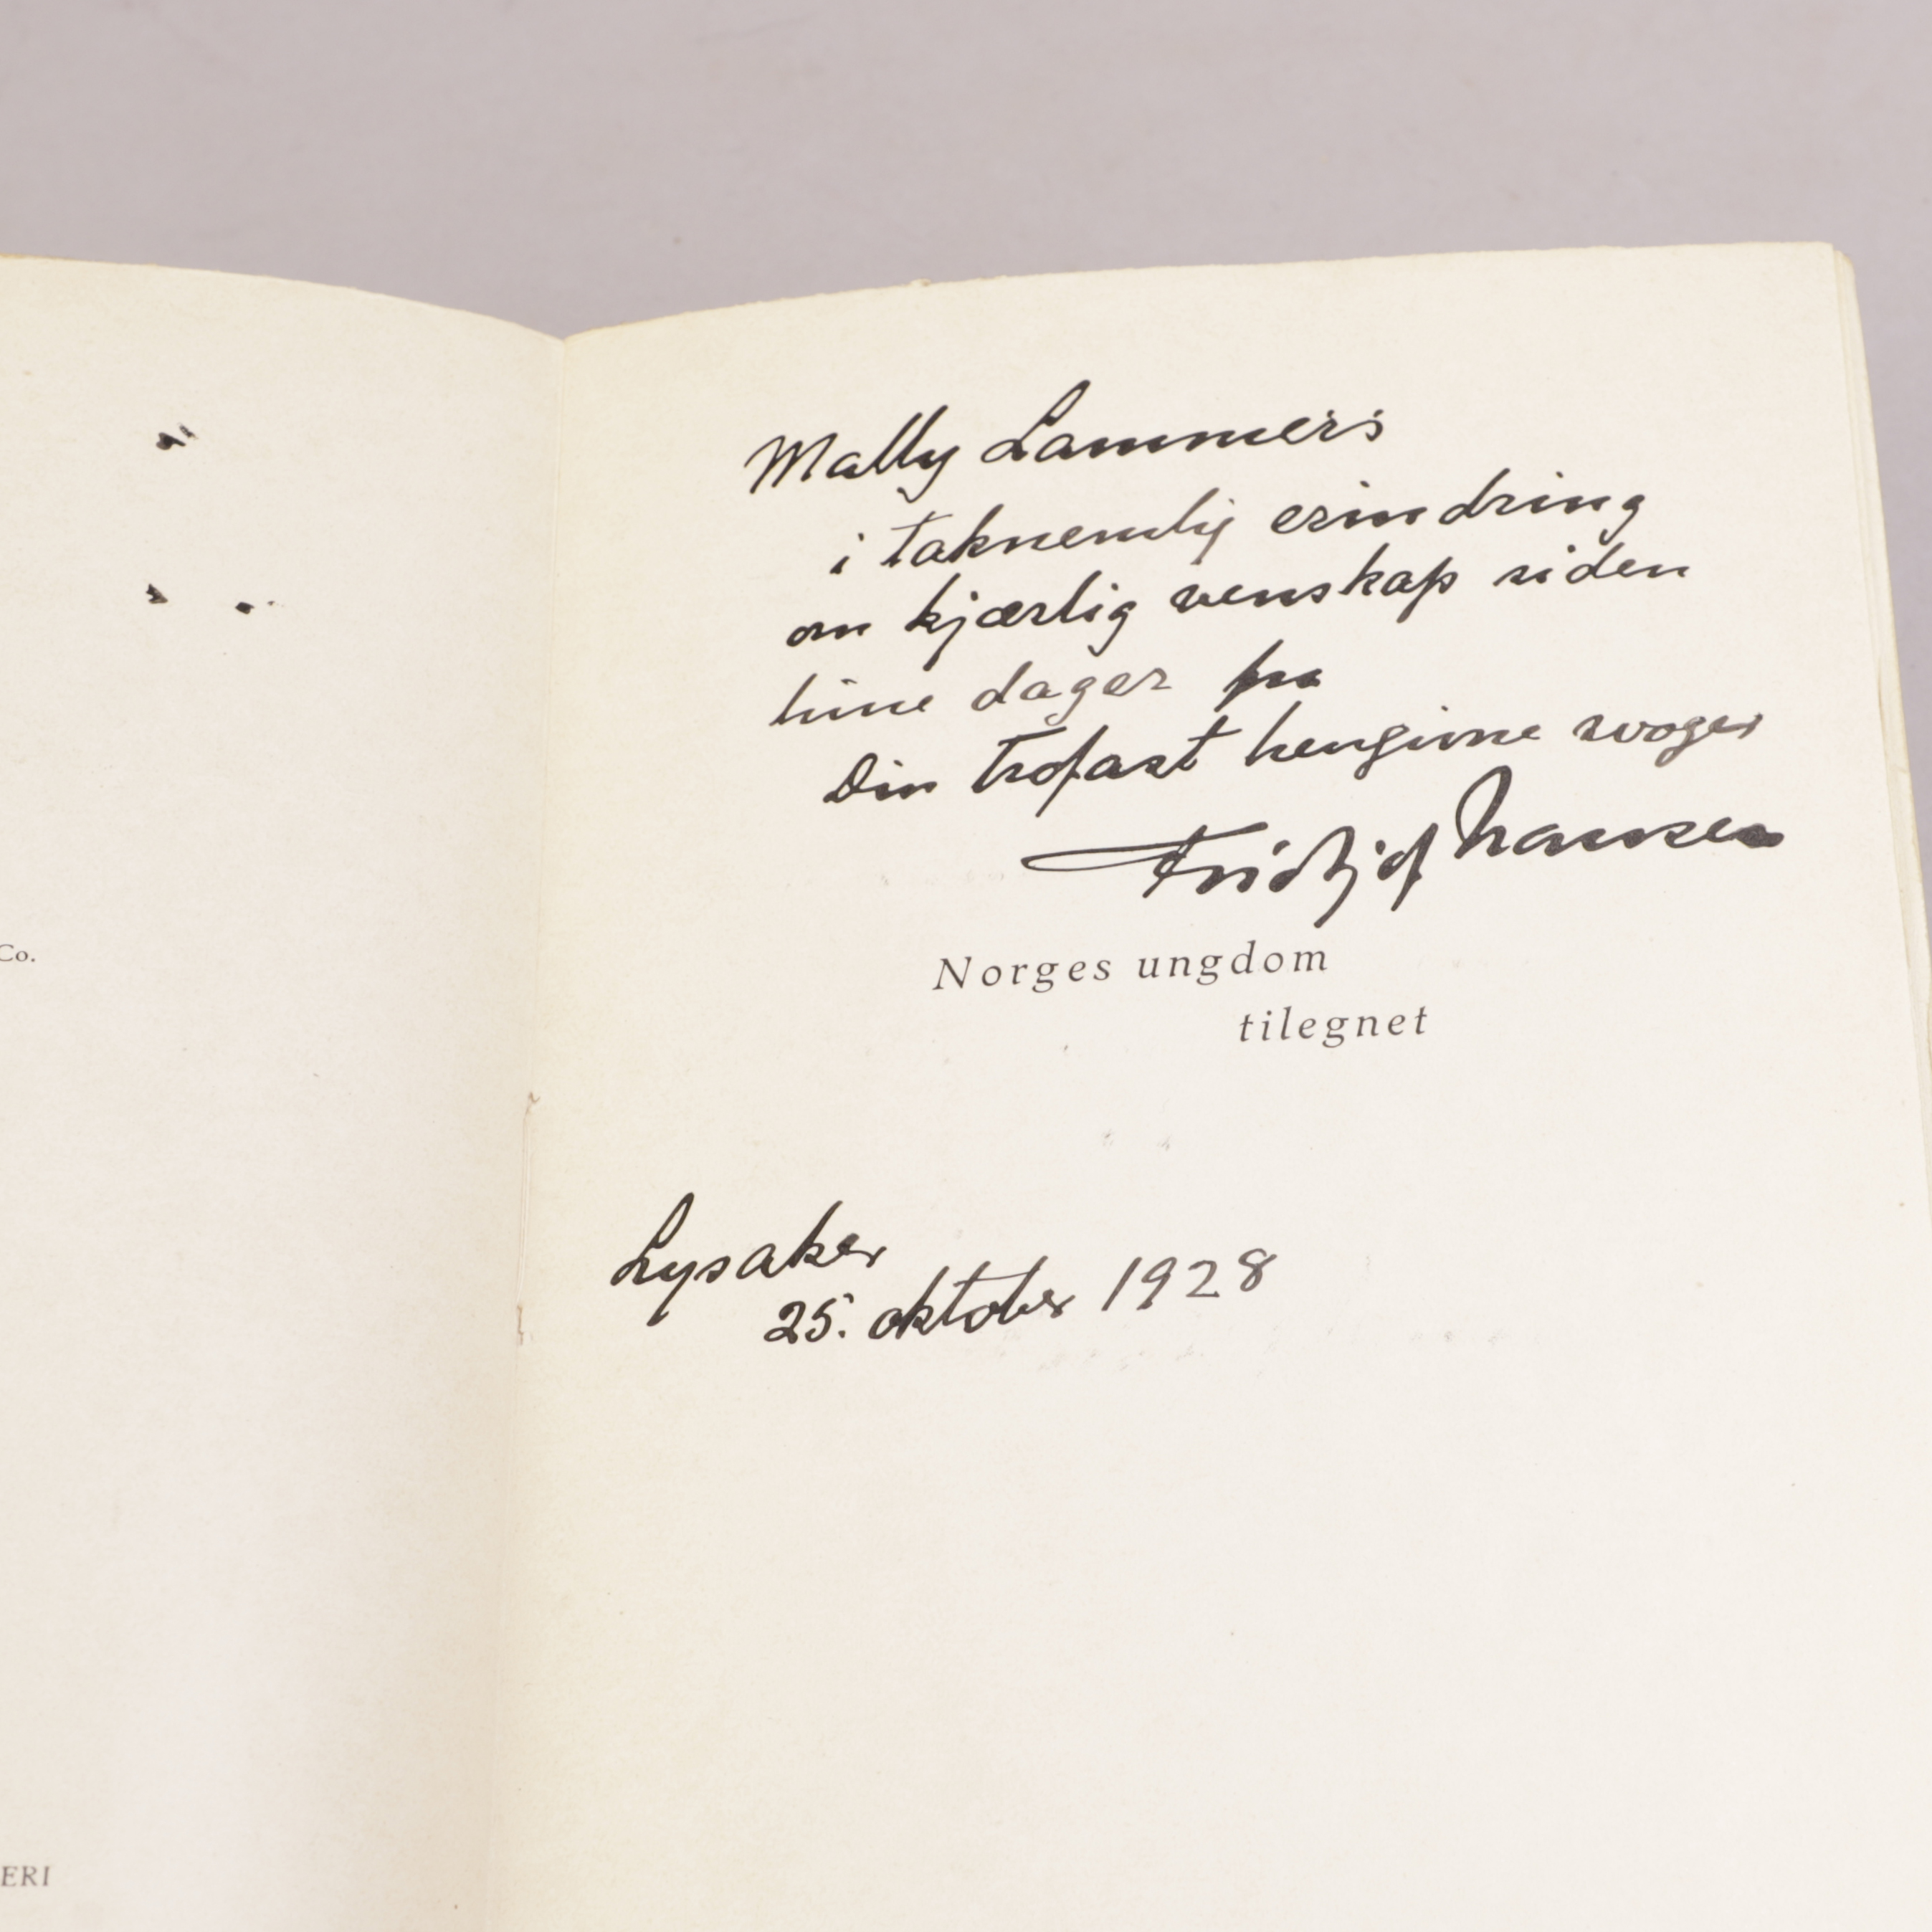 Co.
ERI
Mally Lammers
i taknemlig erindring
om kjærlig venskap siden
hine dager fra
Din trofast hengivne svoger
Fridtjof Nansen
Norges ungdom
tilegnet
Lysaker
25. oktober 1928